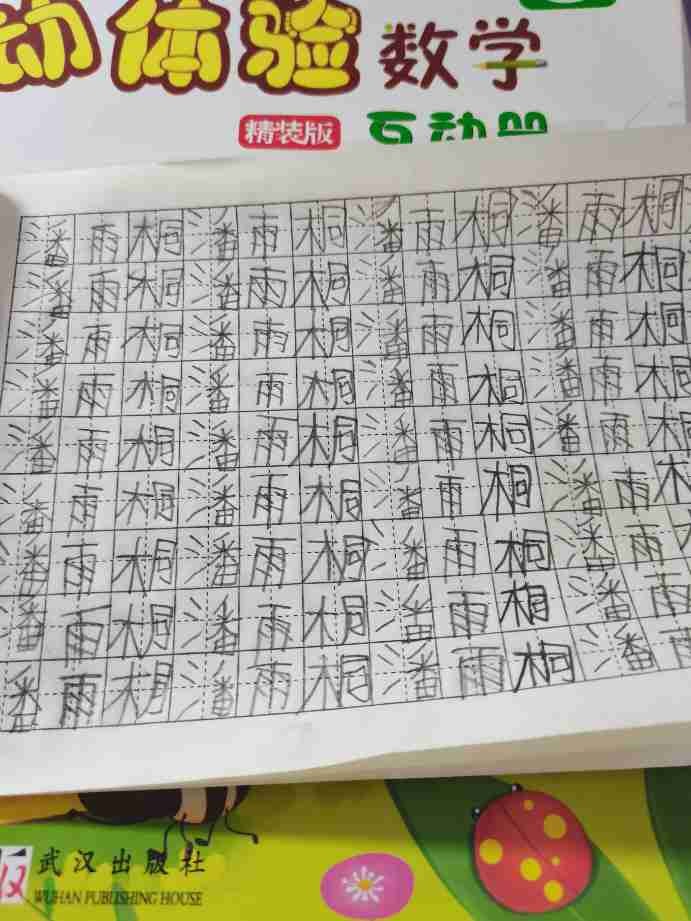 动体验数学
精装版
互动册
潘雨桐潘雨桐潘雨桐潘雨桐
潘雨桐潘雨桐潘雨桐潘雨桐
潘雨桐潘雨桐潘雨桐潘雨桐
潘雨桐潘雨桐潘雨桐潘雨桐
潘雨桐潘雨桐潘雨桐潘雨桐
潘雨桐潘雨桐潘雨桐潘雨
潘雨桐潘雨桐潘雨桐潘雨
潘雨桐潘雨桐潘雨桐潘雨
潘雨桐潘雨桐潘雨桐潘雨
武汉出版社
WUHAN PUBLISHING HOUSE